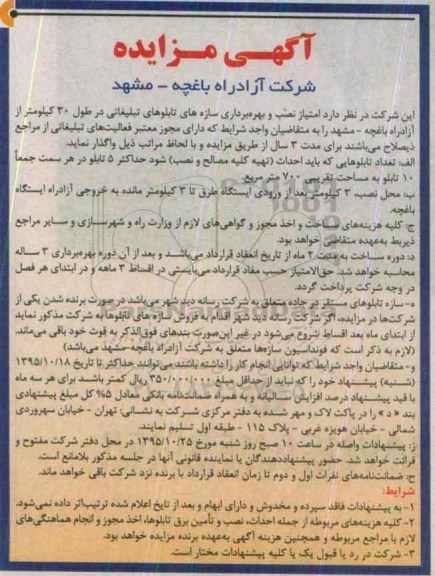 آگهـی مـزایده
شرکت آزادراه باغچه - مشهد
این شرکت در نظر دارد امتیاز نصب و بهره‌برداری سازه های تابلوهای تبلیغاتی در طول ۳۰ کیلومتر از
آزادراه باغچه - مشهد را به متقاضیان واجد شرایط که دارای مجوز معتبر فعالیت‌های تبلیغاتی از مراجع
ذیصلاح می‌باشند برای مدت ۳ سال از طریق مزایده و با لحاظ مراتب ذیل واگذار نماید.
الف: تعداد تابلوهایی که باید احداث (تهیه کلیه مصالح و نصب) شود حداکثر ۵ تابلو در هر سمت جمعاً
۱۰ تابلو به مساحت تقریبی ۷۰۰ متر مربع.
ب: محل نصب، ۳ کیلومتر بعد از ورودی ایستگاه طرق تا ۳ کیلومتر مانده به خروجی آزادراه ایستگاه
باغچه.
ج: کلیه هزینه‌های ساخت و اخذ مجوز و گواهی‌های لازم از وزارت راه و شهرسازی و سایر مراجع
ذیربط به‌عهده متقاضی خواهد بود.
د: دوره ساخت به مدت ۲ ماه از تاریخ انعقاد قرارداد می‌باشـد و بعد از آن دوره بهره‌برداری ۳ سـاله
محاسبه خواهد شد. حق‌الامتیاز حسب مفاد قرارداد می‌بایستی در اقساط ۳ ماهه و در ابتدای هر فصل
در وجه شرکت پرداخت گردد.
ه- سازه تابلوهای مستقر در جاده متعلق به شرکت رسانه دید شهر می‌باشد در صورت برنده شدن یکی از
شرکت‌ها در مزایده، اگر شرکت رسانه دید شهر اقدام به فروش سازه های تابلوها به شرکت مذکور نماید
از ابتدای ماه بعد اقساط شروع می‌شود در غیر این‌صورت بندهای فوق‌الذکر به قوت خود باقی می‌ماند.
(لازم به ذکر است که فونداسیون سازه‌ها متعلق به شرکت آزادراه باغچه-مشهد می‌باشد)
و- متقاضیان واجد شرایط که توانایی انجام کار را داشته باشند می‌توانند حداکثر تا تاریخ ۱۳۹۵/۱۰/۱۸
(شـنبه) پیشنهاد خود را که نباید از حداقل مبلغ ۳۵۰/۰۰۰/۰۰۰ ریال کمتر باشـد برای هر سه ماه
با قید پیشـنهاد درصد افزایش سـالیانه و به همراه ضمانتنامه بانکی معادل ۵% کل مبلغ پیشنهادی
بند « د » را در پاکت لاک و مهر شـده به دفتر مرکزی شـرکت به نشـانی: تهران - خیابان سهروردی
شمالی - خیابان هویزه غربی - پلاک ۱۱۵ - طبقه اول تسلیم نمایند.
ز: پیشنهادات واصله در ساعت ۱۰ صبح روز شنبه مورخ ۱۳۹۵/۱۰/۲۵ در محل دفتر شرکت مفتوح و
قرائت خواهد شد. حضور پیشنهاددهندگان یا نماینده قانونی آنها در جلسه مذکور بلامانع است.
ح: ضمانت‌نامه‌های نفرات اول و دوم تا زمان انعقاد قرارداد با برنده نزد شرکت باقی خواهد ماند.
شرایط:
۱- به پیشنهادات فاقد سپرده و مخدوش و دارای ابهام و بعد از تایخ اعلام شده ترتیب‌اثر داده نمی‌شود.
۲- کلیه هزینه‌های مربوطه از جمله احداث، نصب و تأمین برق تابلوها، اخذ مجوز و انجام هماهنگی‌های
لازم با مراجع مربوطه و همچنین هزینه آگهی به‌عهده برنده مزایده خواهد بود.
۳- شرکت در رد یا قبول یک یا کلیه پیشنهادات مختار است.